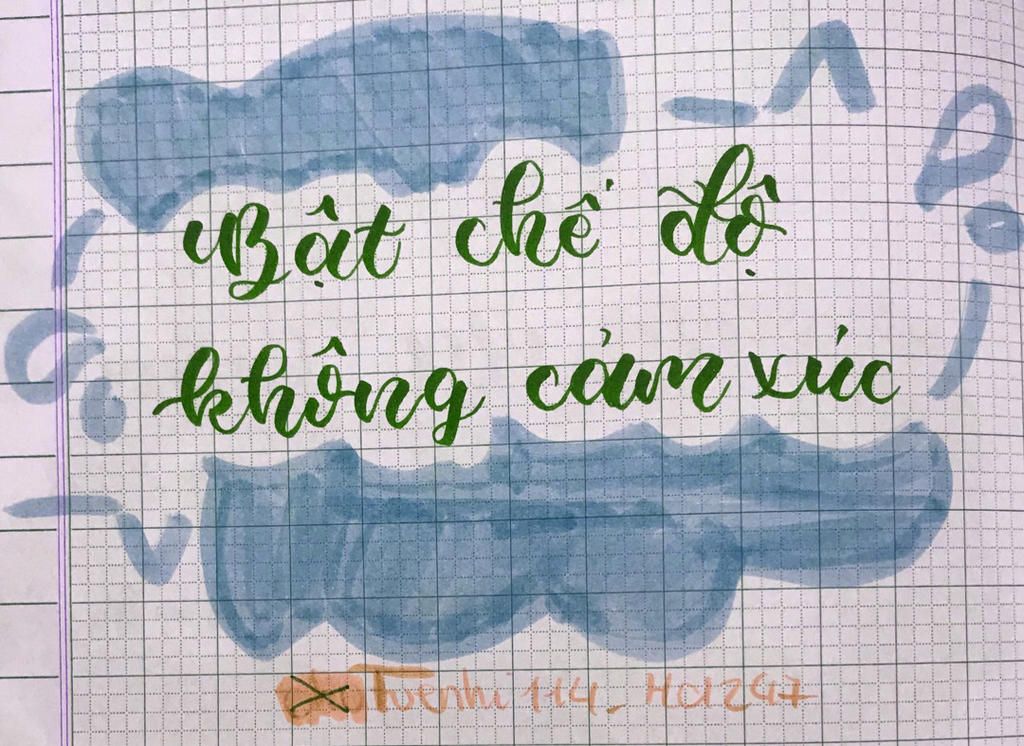 Bật chế độ
không cảm xúc
Tuenhi 114_Hoi247